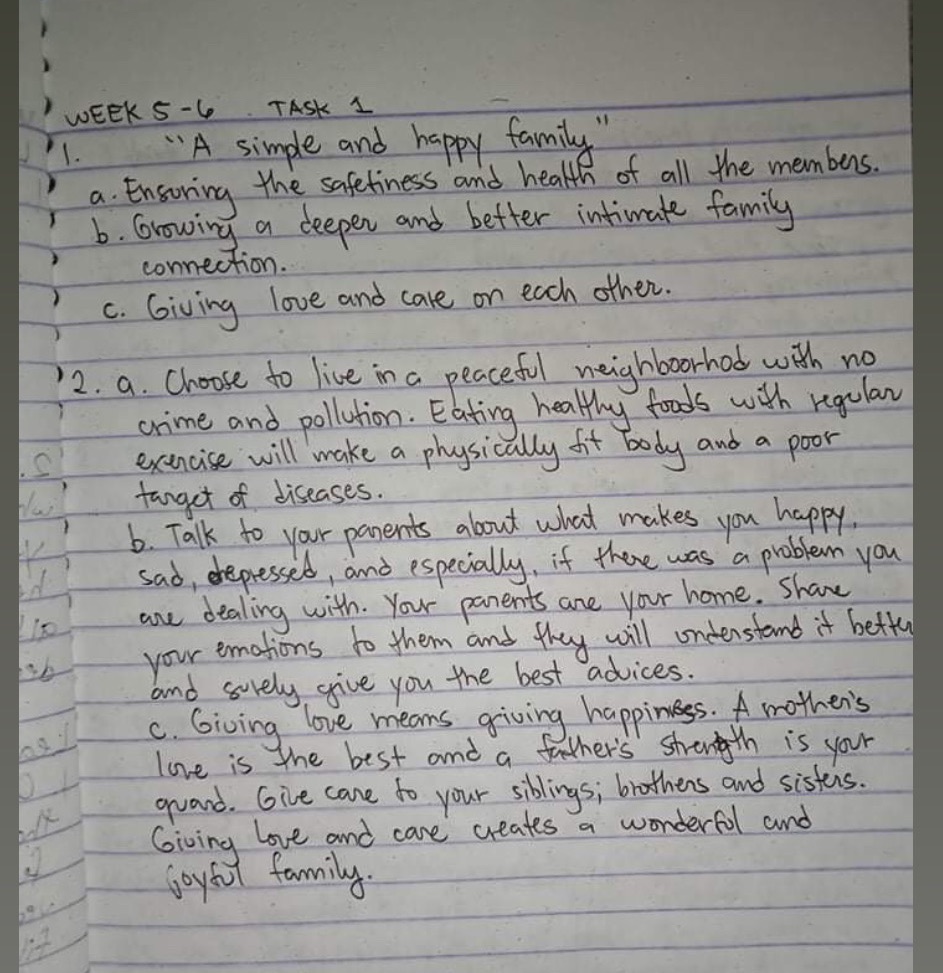 WEEK 5-6 . TASK 1
1. "A simple and happy family"
a. Ensuring the safetiness and health of all the members.
b. Growing a deeper and better intimate family
connection.
c. Giving love and care on each other.
2. a. Choose to live in a peaceful neighboorhod with no
crime and pollution. Eating healthy foods with regular
exercise will make a physically fit body and a poor
target of diseases.
b. Talk to your parents about what makes you happy,
sad, depressed, and especially, if there was a problem you
are dealing with. Your parents are your home. Share
your emotions to them and they will understand it better
and surely give you the best advices.
c. Giving love means giving happiness. A mother's
love is the best and a father's strength is your
guard. Give care to your siblings; brothers and sisters.
Giving love and care creates a wonderful and
joyful family.